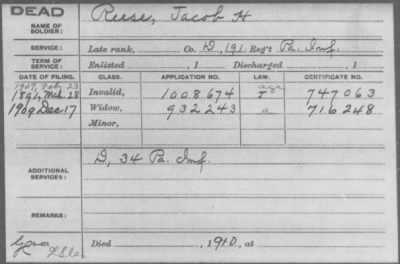 DEAD
NAME OF SOLDIER: Reese, Jacob H
SERVICE: Late rank, Co. D, 191 Reg't Pa. Inf.
TERM OF SERVICE: Enlisted , 1 Discharged , 1
DATE OF FILING. CLASS. APPLICATION NO. LAW. CERTIFICATE NO.
1907, Feb 23 age
1891, Mch 28 Invalid, 1008674 747063
1909 Dec 17 Widow, 932243 a 716248
Minor,
ADDITIONAL SERVICES: D, 34 Pa. Inf.
REMARKS:
Died , 1910, at